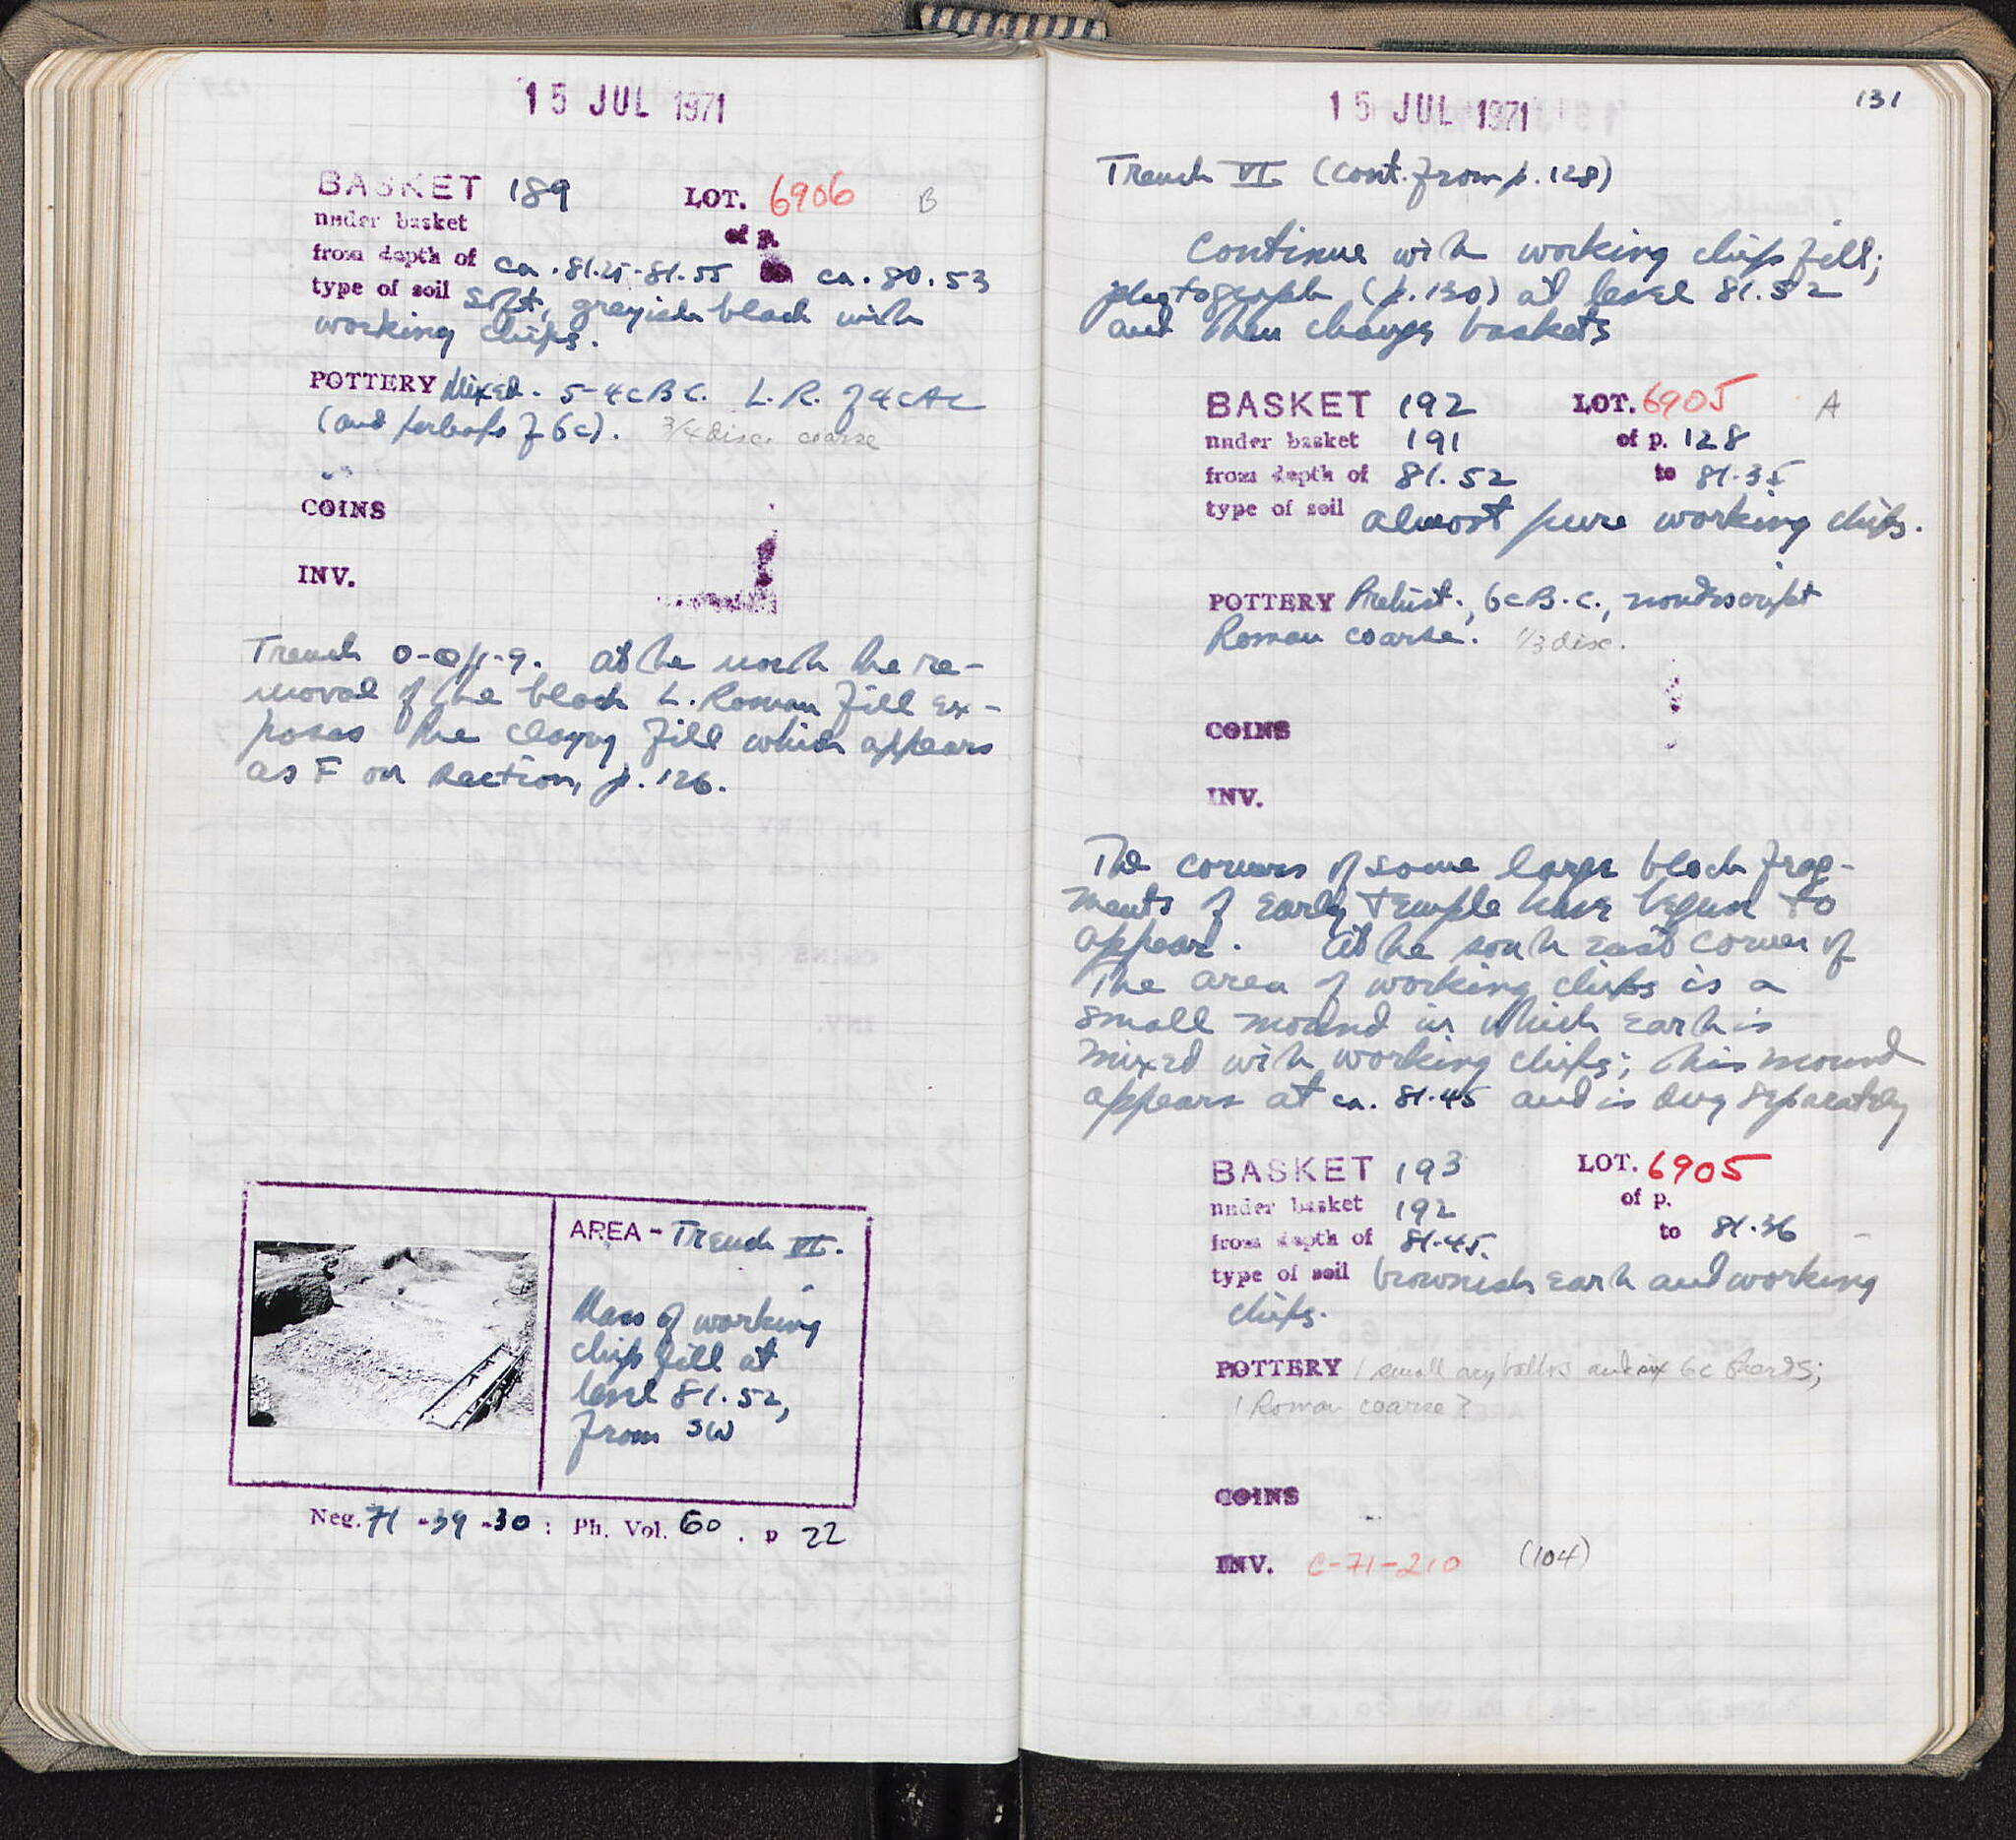 15 JUL 1971
BASKET 189 LOT. 6906 B
under basket of p.
from depth of ca. 81.25-81.55 ca. 80.53
type of soil Soft, greyish black with
working chips.
POTTERY Mixed. 5-4c B.C. L.R. of 4c AC
(and perhaps of 6c). 3/4 disc. coarse
COINS
INV.
Trench at the north the re-
moval of the black L. Roman fill ex-
poses the clayey fill which appears
as F on section, p. 126.
AREA - Trench VI.
Mass of working
chip fill at
level 81.52,
from SW
Neg. 71-39-30 : Ph. Vol. 60 . p 22
15 JUL 1971 131
Trench VI (cont. from p. 128)
Continue with working chip fill;
photograph (p. 130) at level 81.52
and then change baskets
BASKET 192 LOT. 6905 A
under basket 191 of p. 128
from depth of 81.52 to 81.35
type of soil almost pure working chips.
POTTERY Prehist., 6c B.C., nondescript
Roman coarse. 1/3 disc.
COINS
INV.
The corners of some large block frag-
ments of early temple have begun to
appear. At the south east corner of
the area of working chips is a
small mound in which earth is
mixed with working chips; this mound
appears at ca. 81.45 and is dug separately
BASKET 193 LOT. 6905
under basket 192 of p.
from depth of 81.45. to 81.36
type of soil brownish earth and working
chips.
POTTERY 1 small aryballos and six 6c sherds;
1 Roman coarse?
COINS
INV. C-71-210 (104)